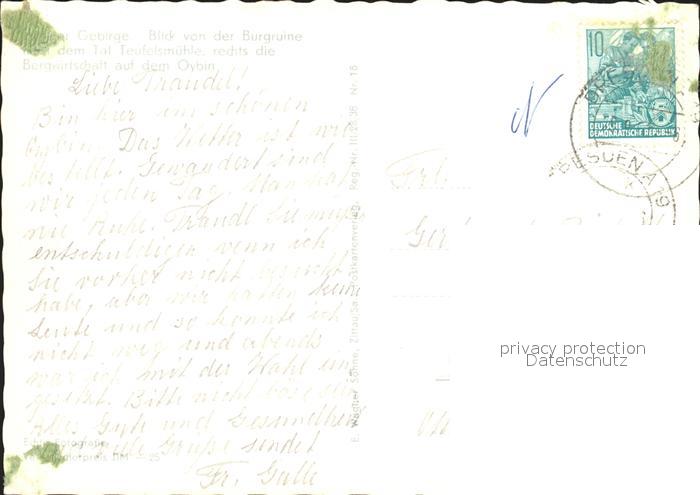 Gebirge Blick von der Burgruine
dem Tal Teufelsmühle, rechts die
Bergwirtschaft auf dem Oybin
Liebe Traudel!
Bin hier im schönen
Oybin. Das Wetter ist wie
bestellt. Gewandert sind
wir jeden Tag. Man hat
nie Ruhe. Traudl Sie müssen
entschuldigen wenn ich
Sie vorher nicht besucht
habe, aber wir hatten keine
Leute und so konnte ich
nicht weg und abends
war ich mit der Wahl ein
gesetzt. Bitte nicht böse sein
Alles Gute und Gesundheit
viele Grüße sendet
Fr. Galle
Echte Fotografie
25
E. Wagner Söhne, Zittau/Sa. Postkartenverlag. Reg.-Nr. Nr. 16
10
DEUTSCHE
DEMOKRATISCHE REPUBLIK
DRESDEN A 9
Frl.
privacy protection
Datenschutz